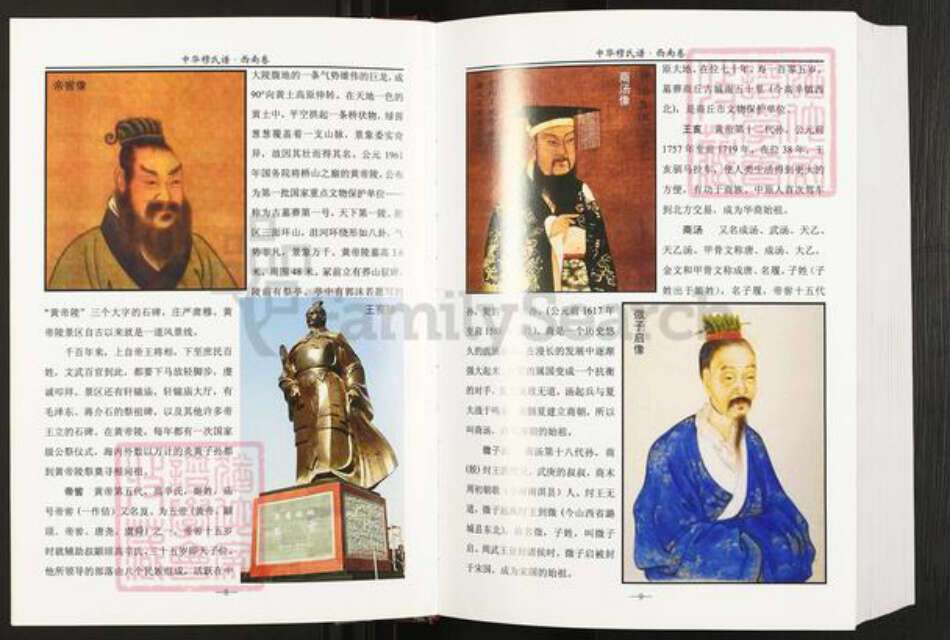 中华穆氏谱·西南卷
帝喾像
大陵腹地的一条气势雄伟的巨龙,成
90°向黄土高原伸转。在天地一色的
黄土中,平空拱起一条桥状物,绿茵
葱葱覆盖着一支山脉,景象委实奇
异,故因其壮而得其名。公元1961
年国务院将桥山之巅的黄帝陵,公布
为第一批国家重点文物保护单位——
称为古墓葬第一号,天下第一陵。陵
区三面环山,沮河环绕形如八卦,气
势非凡,景象万千。黄帝陵墓高3.6
米,周围48米,冢前立有
陵前有祭亭,亭中有郭沫若题写的
“黄帝陵”三个大字的石碑,庄严肃穆。黄
帝陵景区自古以来就是一道风景线。
千百年来,上自帝王将相,下至庶民百
姓,文武百官到此,都要下马放轻脚步,虔
诚叩拜。景区还有轩辕庙,轩辕庙大厅,有
毛泽东、蒋介石的祭祖碑,以及其他许多帝
王立的石碑。在黄帝陵,每年都有一次国家
级公祭仪式,海内外数以万计的炎黄子孙都
到黄帝陵祭奠寻根问祖。
帝喾 黄帝第五代,高辛氏,姬姓,庙
号帝喾(一作俈)又名夋,为五帝(黄帝、颛
顼、帝喾、唐尧、虞舜)之一。帝喾十五岁
时就辅助叔颛顼高辛氏,三十五岁即天子位,
他所领导的部落由八个民族组成,活跃在中
王亥
8
中华穆氏谱·西南卷
商汤像
原大地。在位七十年,寿一百零五岁,
墓葬商丘古城南五十里(今高辛镇西
北),是商丘市文物保护单位。
王亥 黄帝第十二代孙。公元前
1757年至前1719年,在位38年。王
亥驯马拉车,使人类生活得到更大的
方便,有功于商族。中原人首次驾车
到北方交易,成为华商始祖。
商汤 又名成汤、武汤、天乙、
天乙汤,甲骨文称唐、成汤、大乙,
金文和甲骨文称成唐,名履,子姓(子
姓出于姬姓),名子履,帝喾十五代
孙,夏
(公元前1617年
至前
),商是一个历史悠
久的
在漫长的发展中逐渐
强大起来,
的属国变成一个抗衡
的对手。
无道,汤起兵与夏
大战于鸣
夏建立商朝,所以
叫商汤,
的始祖。
微子
商汤第十八代孙,商
(殷)纣王
武庚的叔叔,商末
周初朝歌(
淇县)人,纣王无
道,微子
王到微(今山西省潞
城县东北),
微,子姓,叫微子
启。周武王分封诸侯时,微子启被封
于宋国,成为宋国的始祖。
微子启像
9
FamilySearch